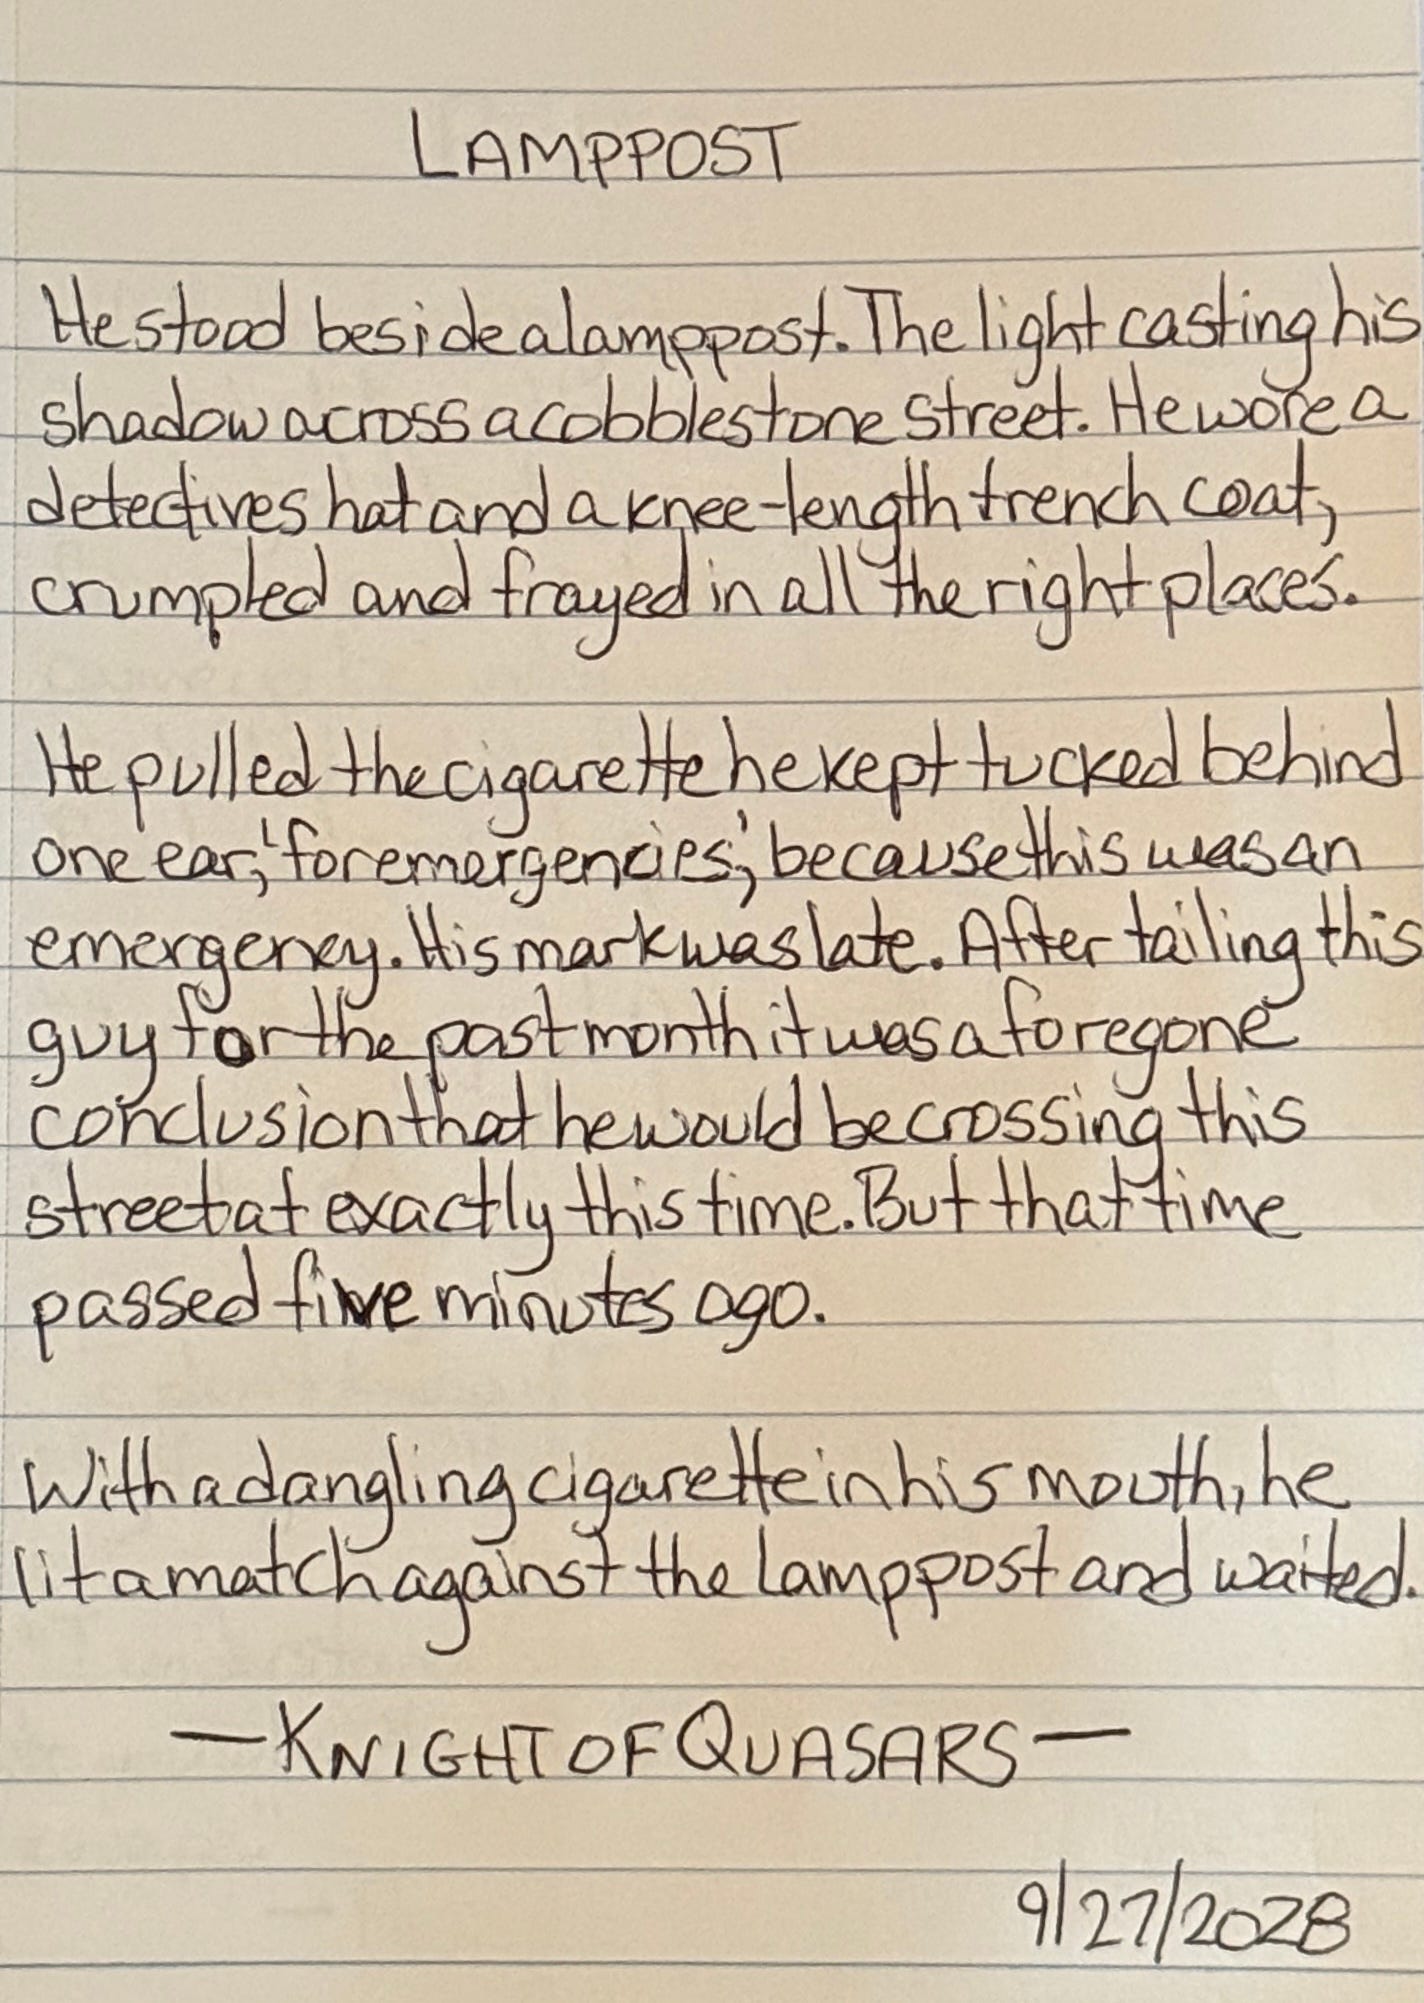 LAMPPOST
He stood beside a lamppost. The light casting his
shadow across a cobblestone street. He wore a
detectives hat and a knee-length trench coat,
crumpled and frayed in all the right places.
He pulled the cigarette he kept tucked behind
one ear, 'for emergencies', because this was an
emergency. His mark was late. After tailing this
guy for the past month it was a foregone
conclusion that he would be crossing this
street at exactly this time. But that time
passed five minutes ago.
With a dangling cigarette in his mouth, he
lit a match against the lamppost and waited.
—KNIGHT OF QUASARS—
9/27/2028